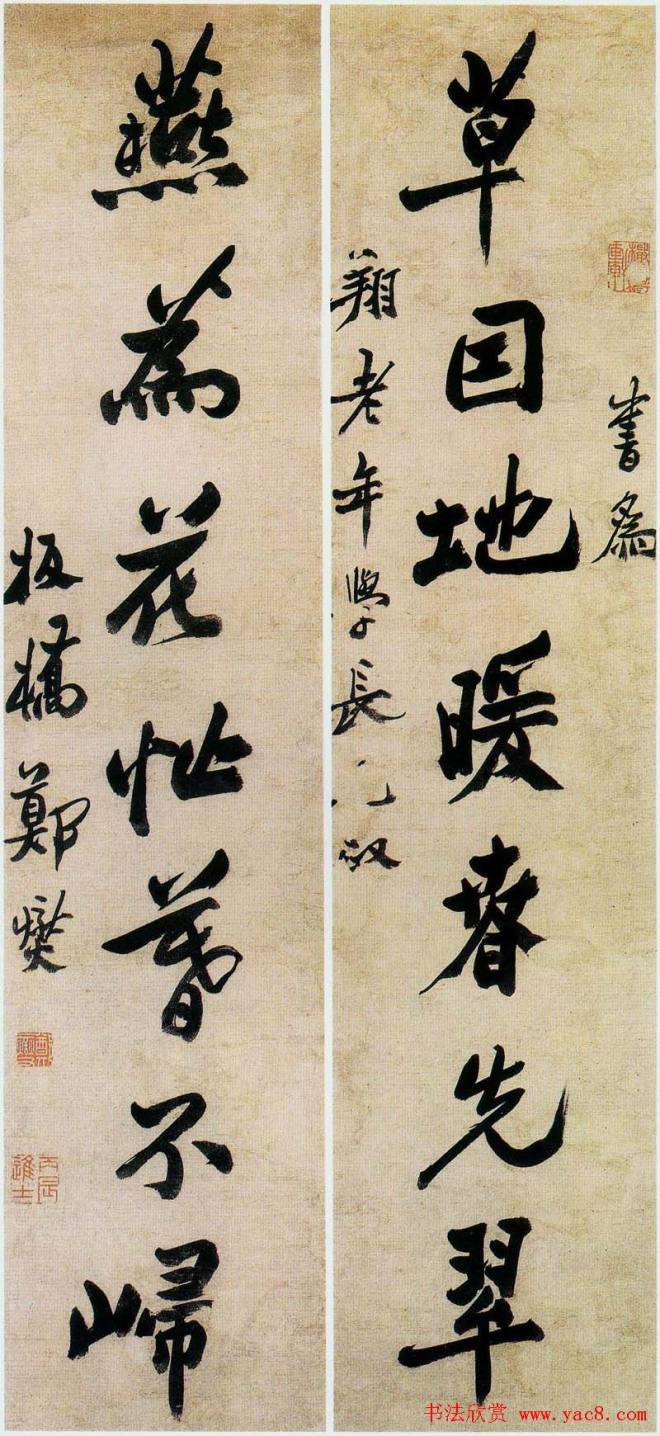 書為
草因地暖春先翠
翔老年學長兄政
燕為花忙暮不歸
板橋鄭燮
丙辰進士
书法欣赏 www.yac8.com